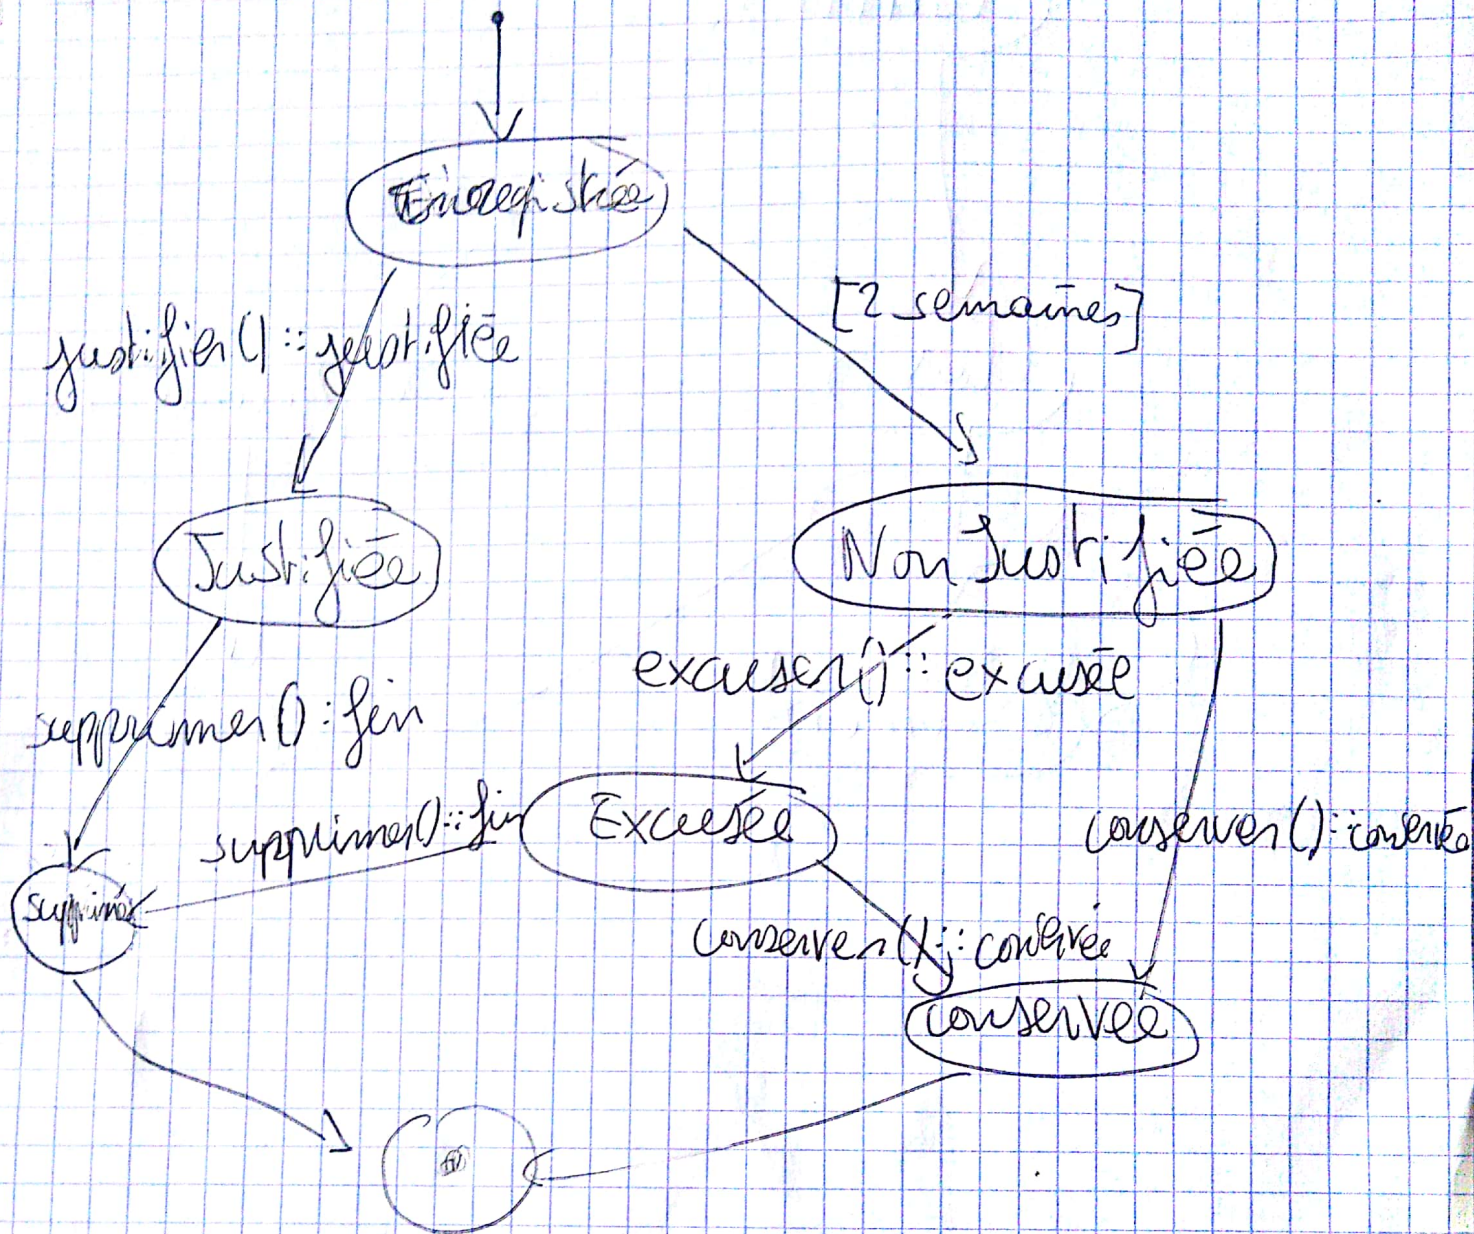 Enregistrée
[2 semaines]
justifier() :: justifiée
Justifiée
Non Justifiée
excuser() :: excusée
supprimer() : fin
supprimer() :: fin
Excusée
conserver() :: conservée
supprimée
conserver() :: conservée
conservée